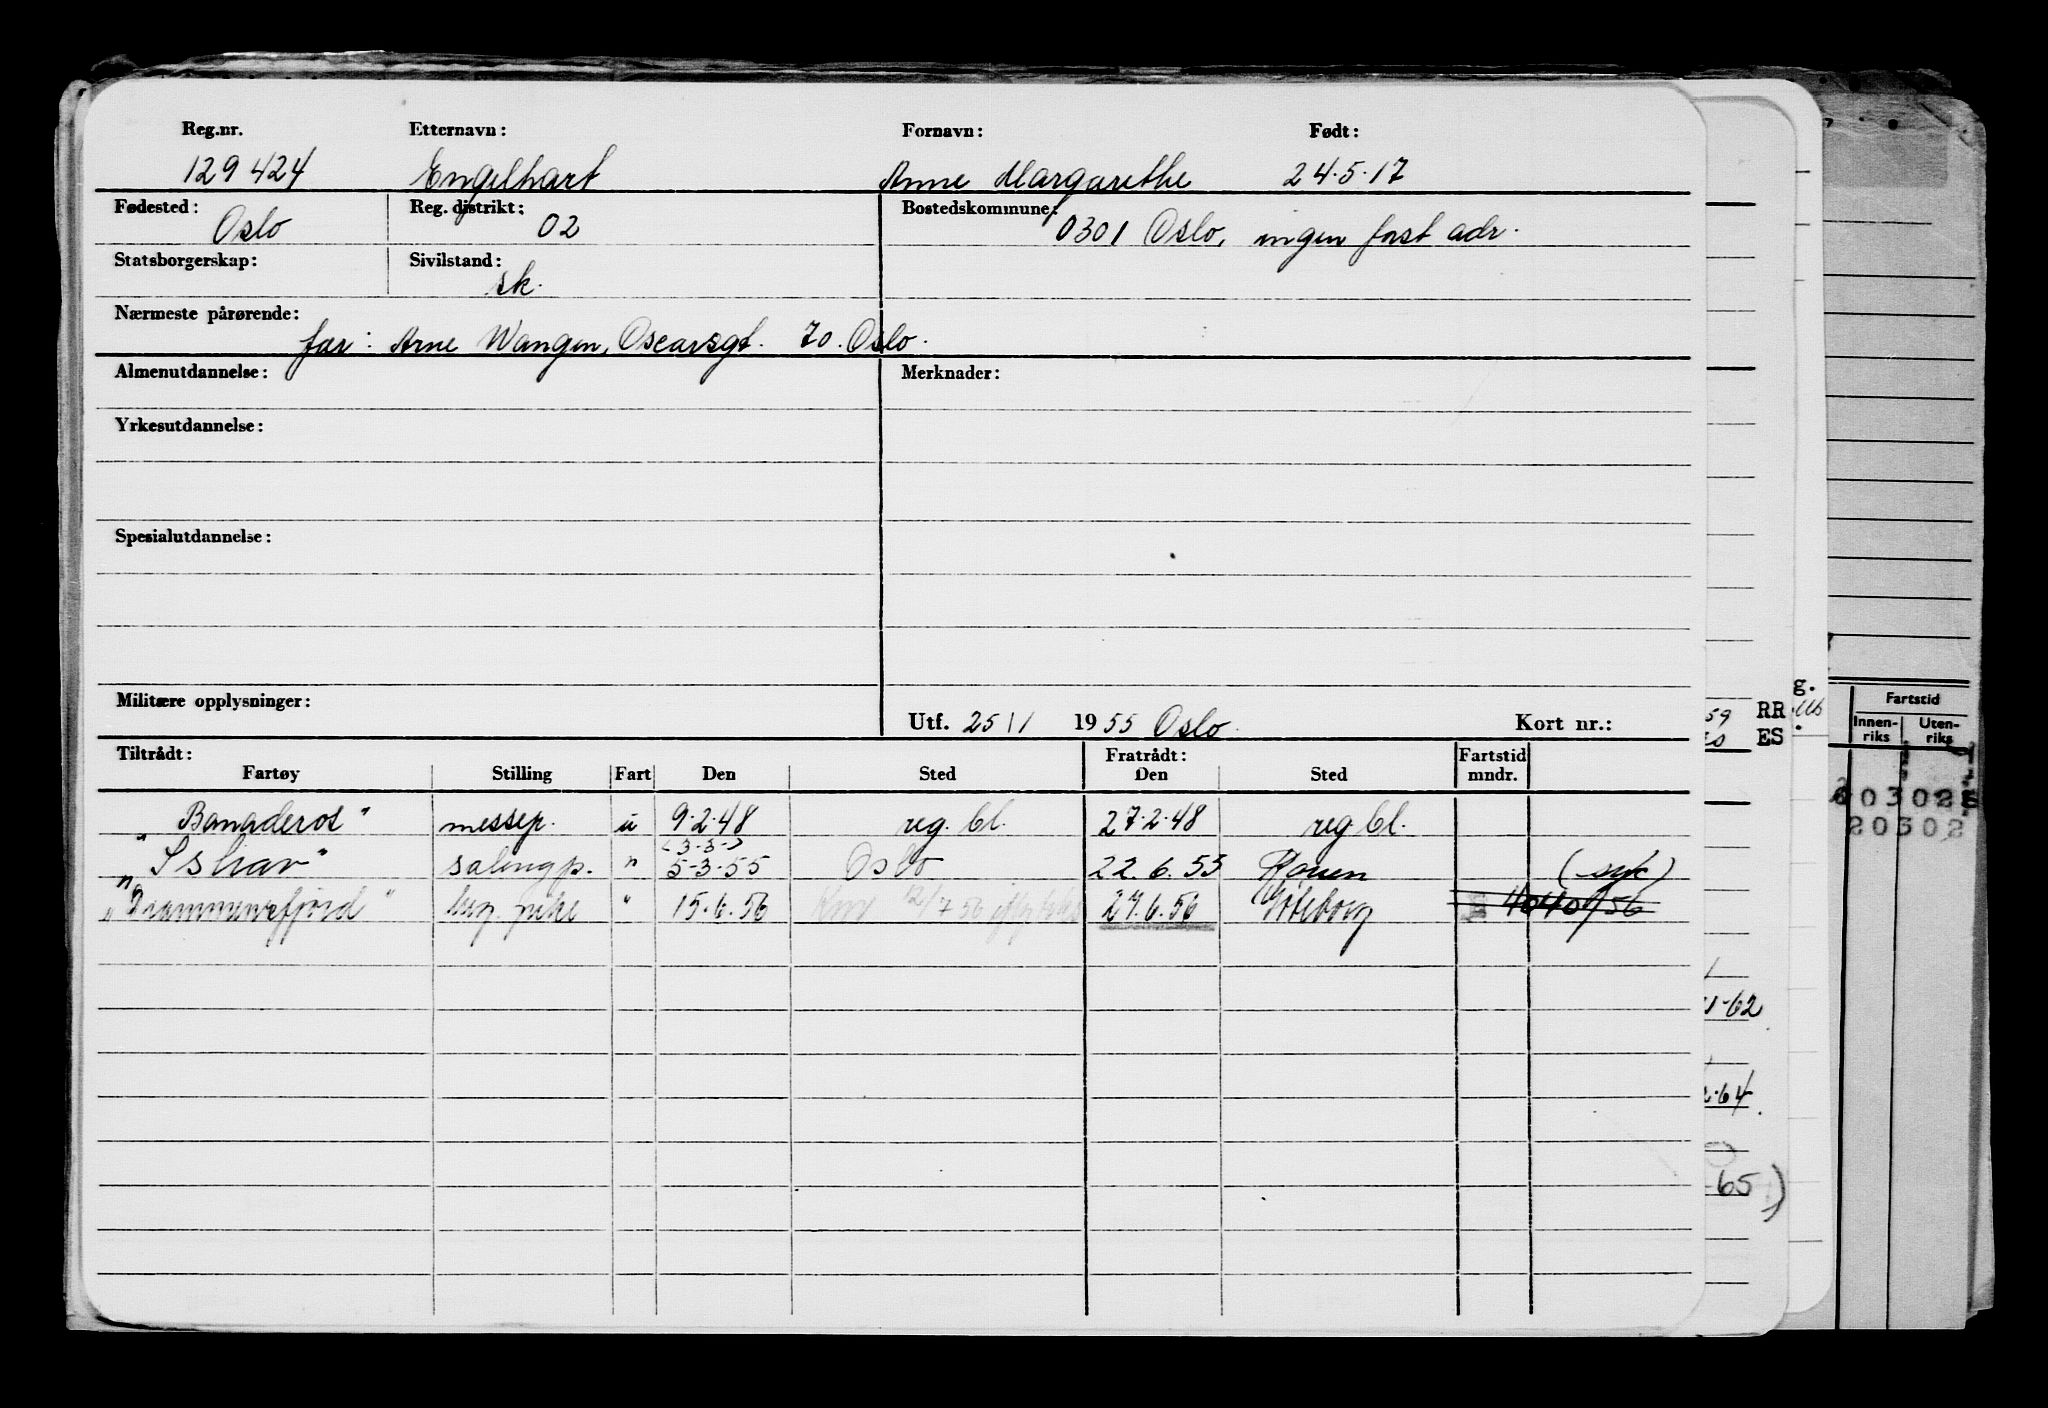 Reg.nr. Etternavn: Fornavn: Født:
129424 Engelhart Anne Margarethe 24.5.17
Fødested: Reg. distrikt: Bostedskommune:
Oslo 02 0301 Oslo, ingen fast adr.
Statsborgerskap: Sivilstand:
sk.
Nærmeste pårørende:
far: Arne Wangen, Oscarsgt. 70. Oslo.
Almenutdannelse: Merknader:
Yrkesutdannelse:
Spesialutdannelse:
Militære opplysninger:
Utf. 25/1 1955 Oslo. Kort nr.:
Tiltrådt: Fratrådt: Fartstid
Fartøy Stilling Fart Den Sted Den Sted mndr.
"Banaderos" messep. u 9.2.48 reg. bl. 27.2.48 reg. bl.
(3-3-)
"Ishav" salongp. " 5-3-55 Oslo 22.6.55 Rouen (syk)
"Drammensfjord" " 15.6.56 27.6.56 Gøteborg 4040/56
g.
59 RR
ES
1-62
2.64
65)
Fartstid
Innen-riks Uten-riks
20302